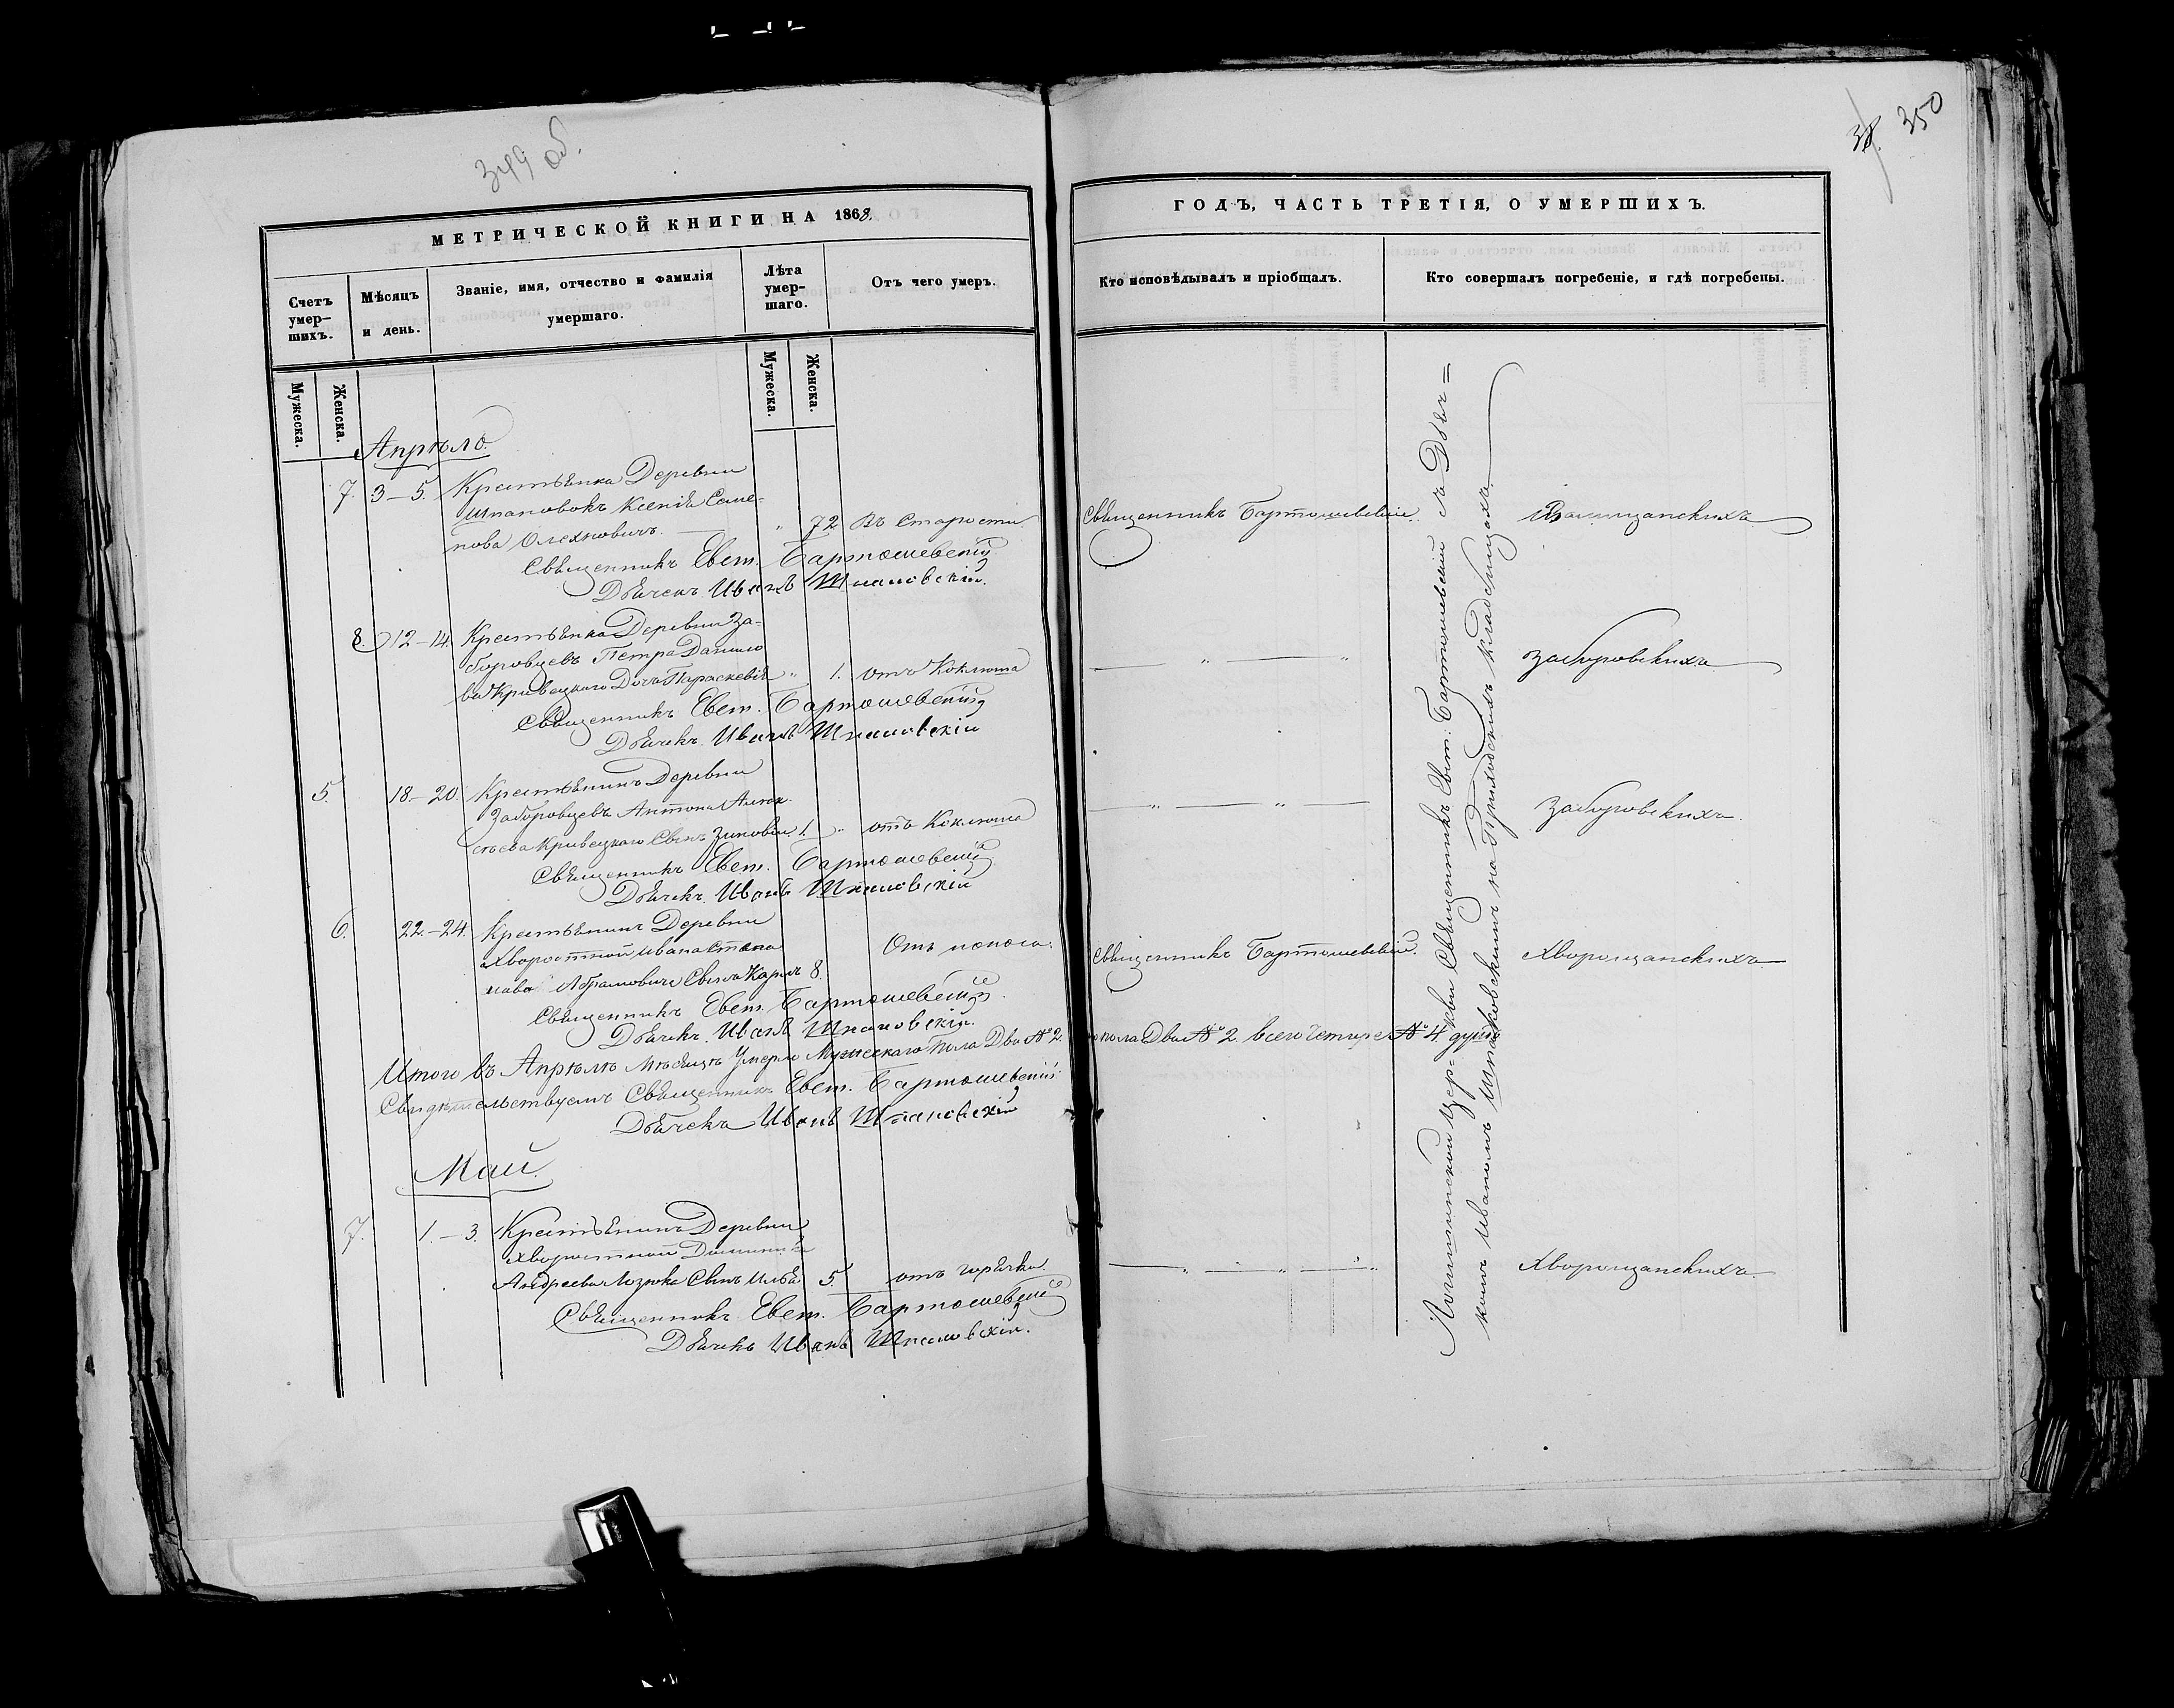 349 об.
МЕТРИЧЕСКОЙ КНИГИ НА 1868.
Счетъ умер-
шихъ.
Мѣсяцъ
и день.
Званіе, имя, отчество и фамилія
умершаго.
Лѣта
умер-
шаго.
Отъ чего умеръ.
Мужеска.
Женска.
Мужеска.
Женска.
Апрѣль
7. 3-5. Крестьянка Деревни
Шпановокъ Ксенія Семе-
нова Олехновичъ. " 72 Въ Старости
Священникъ Евст. Бартошевскій
Дьячекъ Иванъ Шпаковскій.
8. 12-14. Крестьянка Деревни За-
боровцевъ Петра Данило
ва Кривецкаго Дочь Параскевія " 1. отъ Коклюша
Священникъ Евст. Бартошевскій
Дьячекъ Иванъ Шпаковскій
5. 18-20. Крестьянинъ Деревни
Заборовцевъ Антона Алек-
сѣева Кривецкаго Сынъ Зиновій 1. " отъ Коклюша
Священникъ Евст. Бартошевскій
Дьячекъ Иванъ Шпаковскій
6. 22-24. Крестьянинъ Деревни
Хворостной Ивана Степа
нова Абрамовича Сынъ Карпъ 8. Отъ поноса.
Священникъ Евст. Бартошевскій.
Дьячекъ Иванъ Шпаковскій.
Итого въ Апрѣлѣ Мѣсяцѣ Умерло Мужескаго Пола Два № 2.
Свидѣтельствуемъ Священникъ Евст. Бартошевскій.
Дьячекъ Иванъ Шпаковскій
Май.
7. 1.-3. Крестьянинъ Деревни
Хворостной
Андреева Лозюка Сынъ Илья 5. отъ горячки.
Священникъ Евст. Бартошевскій
Дьячекъ Иванъ Шпаковскій.
38. 350
ГОДЪ, ЧАСТЬ ТРЕТІЯ, О УМЕРШИХЪ.
Кто исповѣдывалъ и пріобщалъ.
Кто совершалъ погребеніе, и гдѣ погребены.
Священникъ Бартошевскій.
" "
Заборовскихъ
" "
Заборовскихъ.
Священникъ Бартошевскій.
Хворощанскихъ
пола Два № 2. всего четыре № 4. душъ
" " " "
Хворощанскихъ.
церкви Священникъ Евст: Бартошевскій съ Дьяч=
комъ Иваномъ Шпаковскимъ на Приходскихъ кладбищахъ